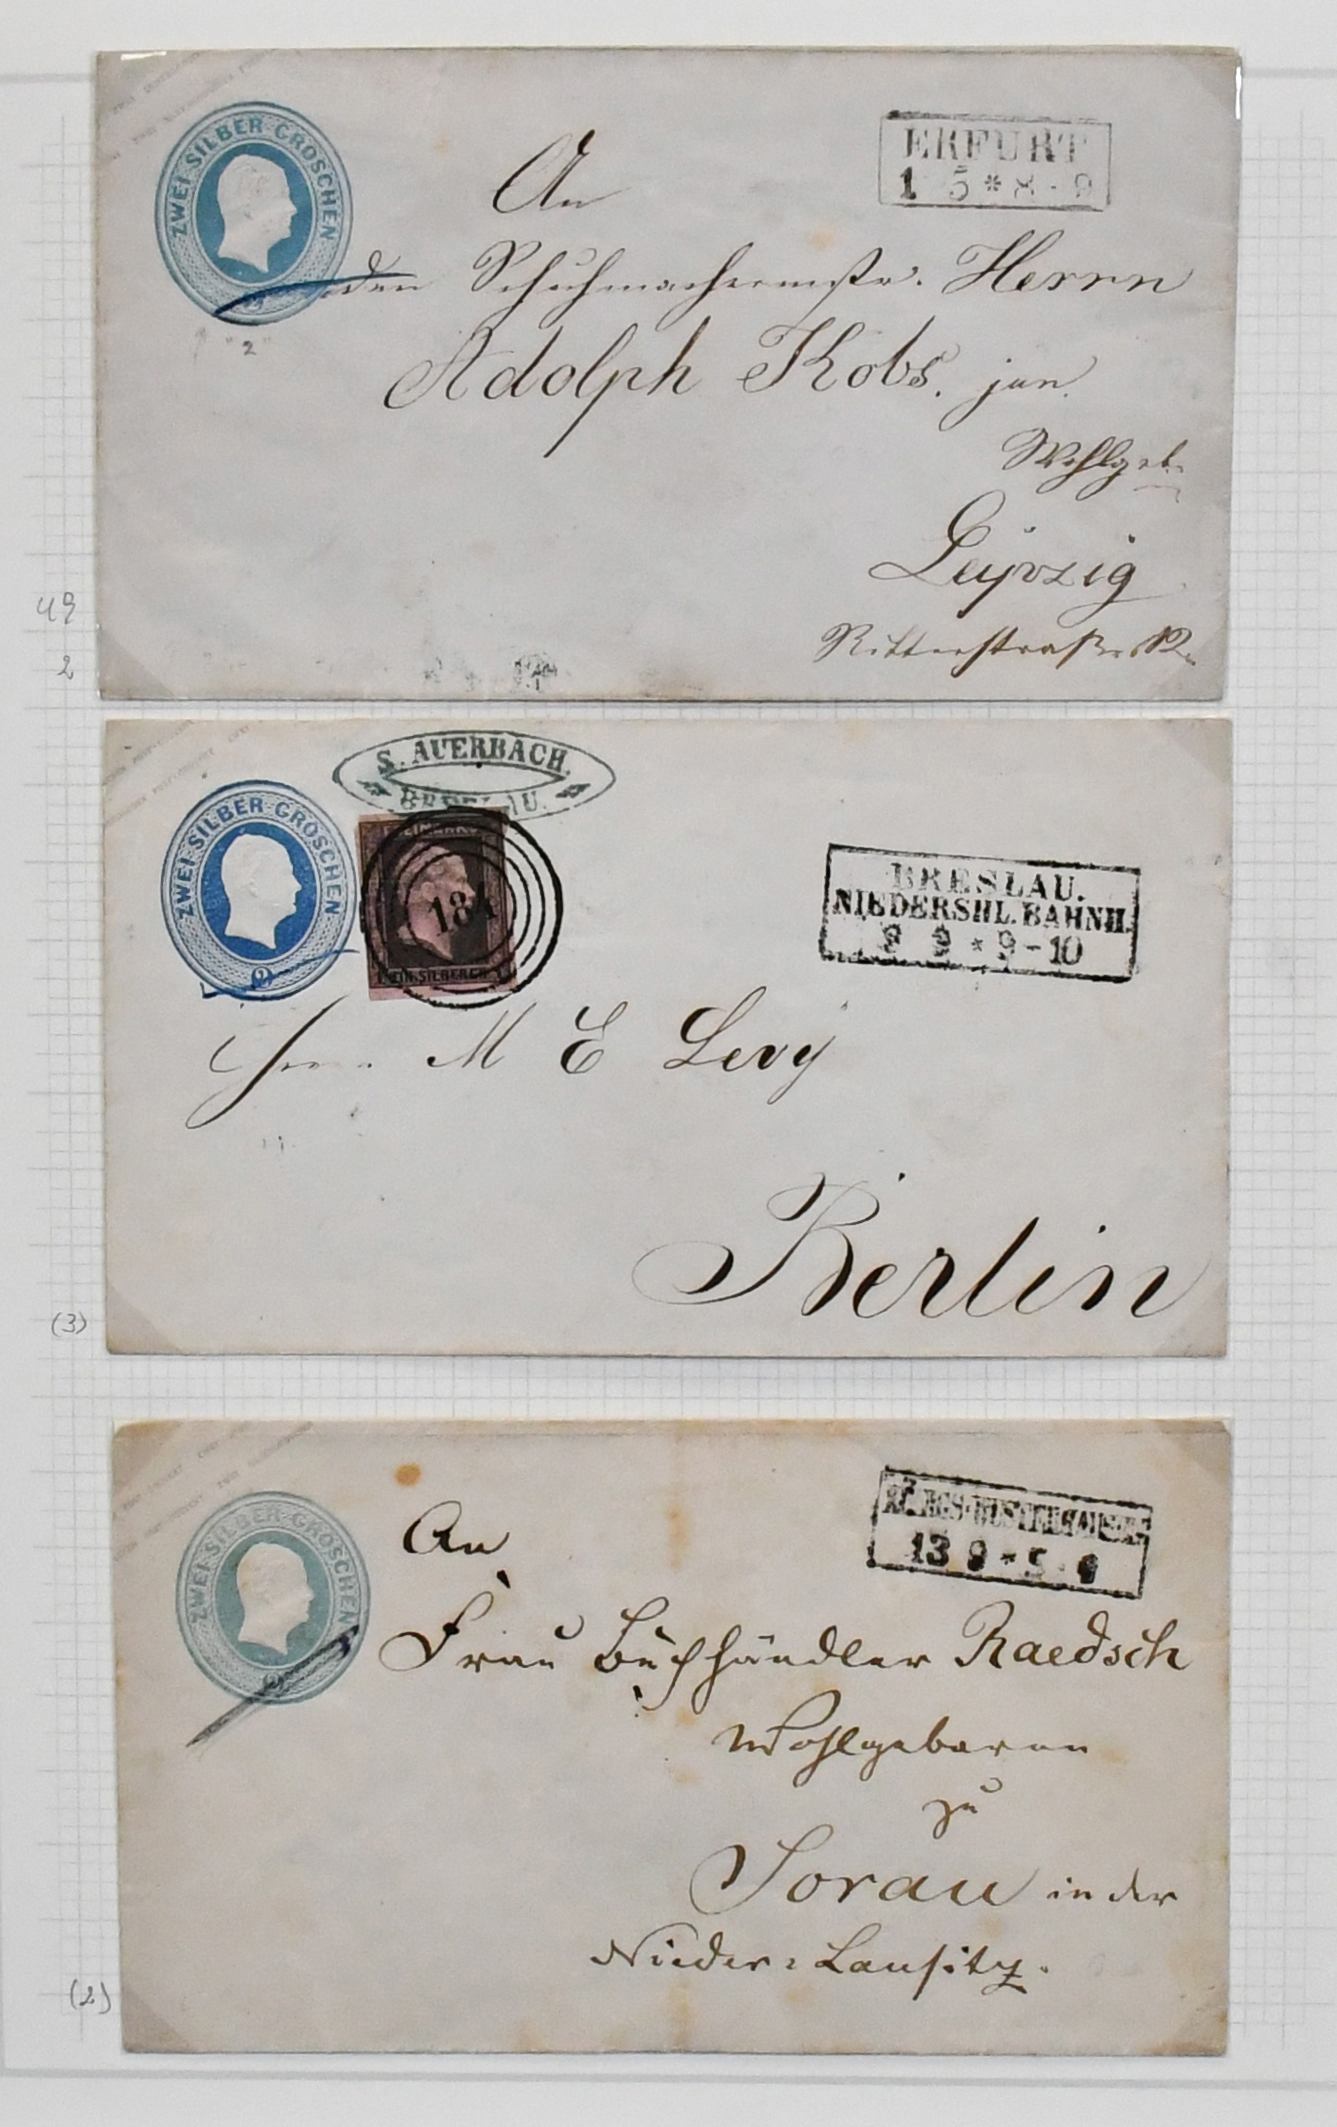 ZWEI SILBER GROSCHEN
2
"2"
ERFURT
1 5 * 8 - 9
An
den Schuhmachermstr. Herrn
Adolph Kobs. jun.
Wohlgeb.
Leipzig
Ritterstraße
49
2
ZWEI SILBER GROSCHEN
2
S. AUERBACH.
BRESLAU.
FREIMARKE
184
EIN SILBERGR.
BRESLAU.
NIEDERSHL. BAHNH.
9 * 9 - 10
Herrn M E Levy
Berlin
(3)
ZWEI SILBER GROSCHEN
2
KÖNIGS-WUSTERHAUSEN
13 9 * 5 - 6
An
Frau Buchhändler Raedsch
Wohlgeboren
zu
Sorau in der
Nieder-Lausitz.
(2)